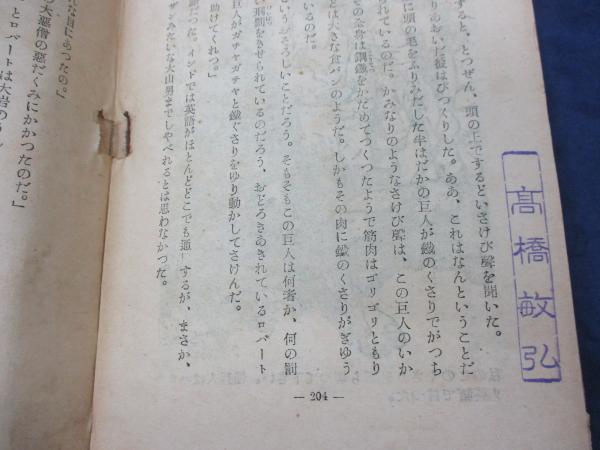 すると、とつぜん、頭の上でするどいさけび聲を聞いた。
りあおいだ彼はびつくりした。ああ、これはなんということだ
に頭の毛をふりみだした半はだかの巨人が鐵のくさりでがつち
れているのだ。かみなりのようなさけび聲は、この巨人のいか
その全身は鋼鐵をかためてつくつたようで筋肉はゴリゴリともり
とは大きな食パンのようだ。しかもその肉に鐵のくさりがぎゆう
いるのだ。
いうおそろしいことだろう。そもそもこの巨人は何者か、何の罰
い刑罰をきせられているのだろう、おどろきあきれているロバート
巨人がガチャガチャと鐵ぐさりをゆり動かしてさけんだ。
助けてくれつ。」
語だつた。インドでは英語がほとんどどこでも通 するが、まさか、
ザンみたいな大山男までしやべれるとは思わなかつた。
な目にあつたの。」
の大惡僧の惡だくみにかかつたのだ。」
とロバートは大岩の
— 204 —
髙橋敏弘